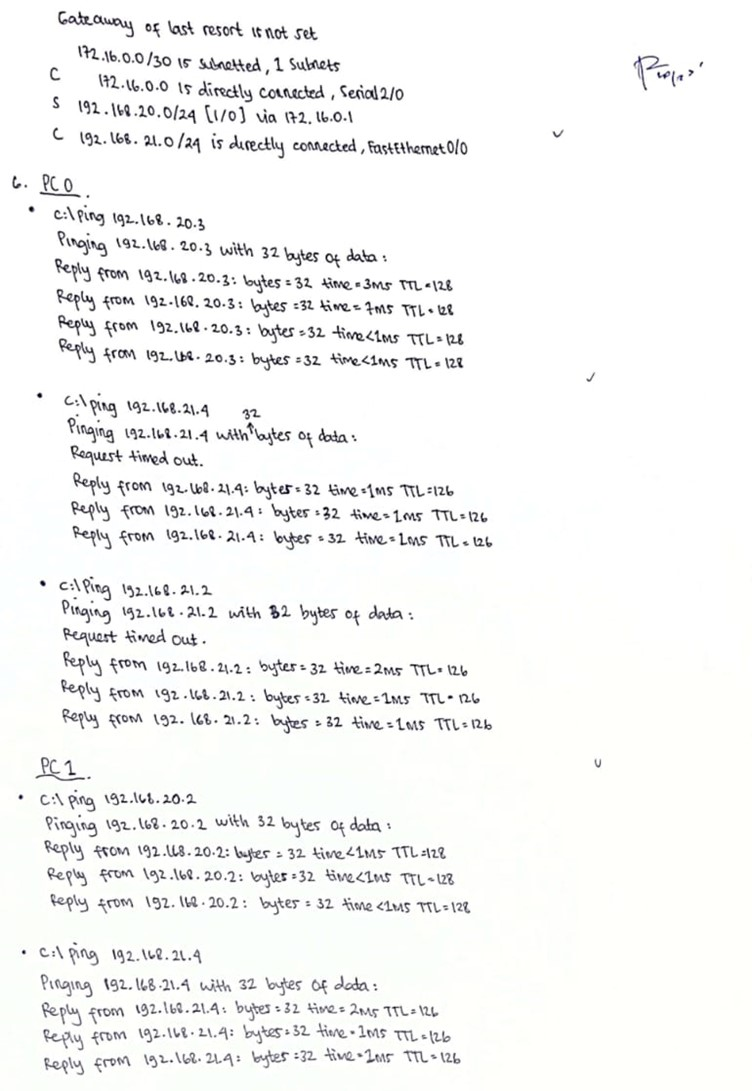 Gateaway of last resort is not set
172.16.0.0/30 is subnetted, 1 subnets
C 172.16.0.0 is directly connected, Serial2/0
S 192.168.20.0/24 [1/0] via 172.16.0.1
C 192.168.21.0/24 is directly connected, FastEthernet0/0
6. PC 0
• c:\ping 192.168.20.3
Pinging 192.168.20.3 with 32 bytes of data:
Reply from 192.168.20.3: bytes=32 time=3ms TTL=128
Reply from 192.168.20.3: bytes=32 time=7ms TTL=128
Reply from 192.168.20.3: bytes=32 time<1ms TTL=128
Reply from 192.168.20.3: bytes=32 time<1ms TTL=128
• c:\ping 192.168.21.4
Pinging 192.168.21.4 with 32 bytes of data:
Request timed out.
Reply from 192.168.21.4: bytes=32 time=1ms TTL=126
Reply from 192.168.21.4: bytes=32 time=1ms TTL=126
Reply from 192.168.21.4: bytes=32 time=1ms TTL=126
• c:\Ping 192.168.21.2
Pinging 192.168.21.2 with 32 bytes of data:
Request timed out.
Reply from 192.168.21.2: bytes=32 time=2ms TTL=126
Reply from 192.168.21.2: bytes=32 time=1ms TTL=126
Reply from 192.168.21.2: bytes=32 time=1ms TTL=126
PC 1
• c:\ping 192.168.20.2
Pinging 192.168.20.2 with 32 bytes of data:
Reply from 192.168.20.2: bytes=32 time<1ms TTL=128
Reply from 192.168.20.2: bytes=32 time<1ms TTL=128
Reply from 192.168.20.2: bytes=32 time<1ms TTL=128
• c:\ping 192.168.21.4
Pinging 192.168.21.4 with 32 bytes of data:
Reply from 192.168.21.4: bytes=32 time=2ms TTL=126
Reply from 192.168.21.4: bytes=32 time=1ms TTL=126
Reply from 192.168.21.4: bytes=32 time=1ms TTL=126